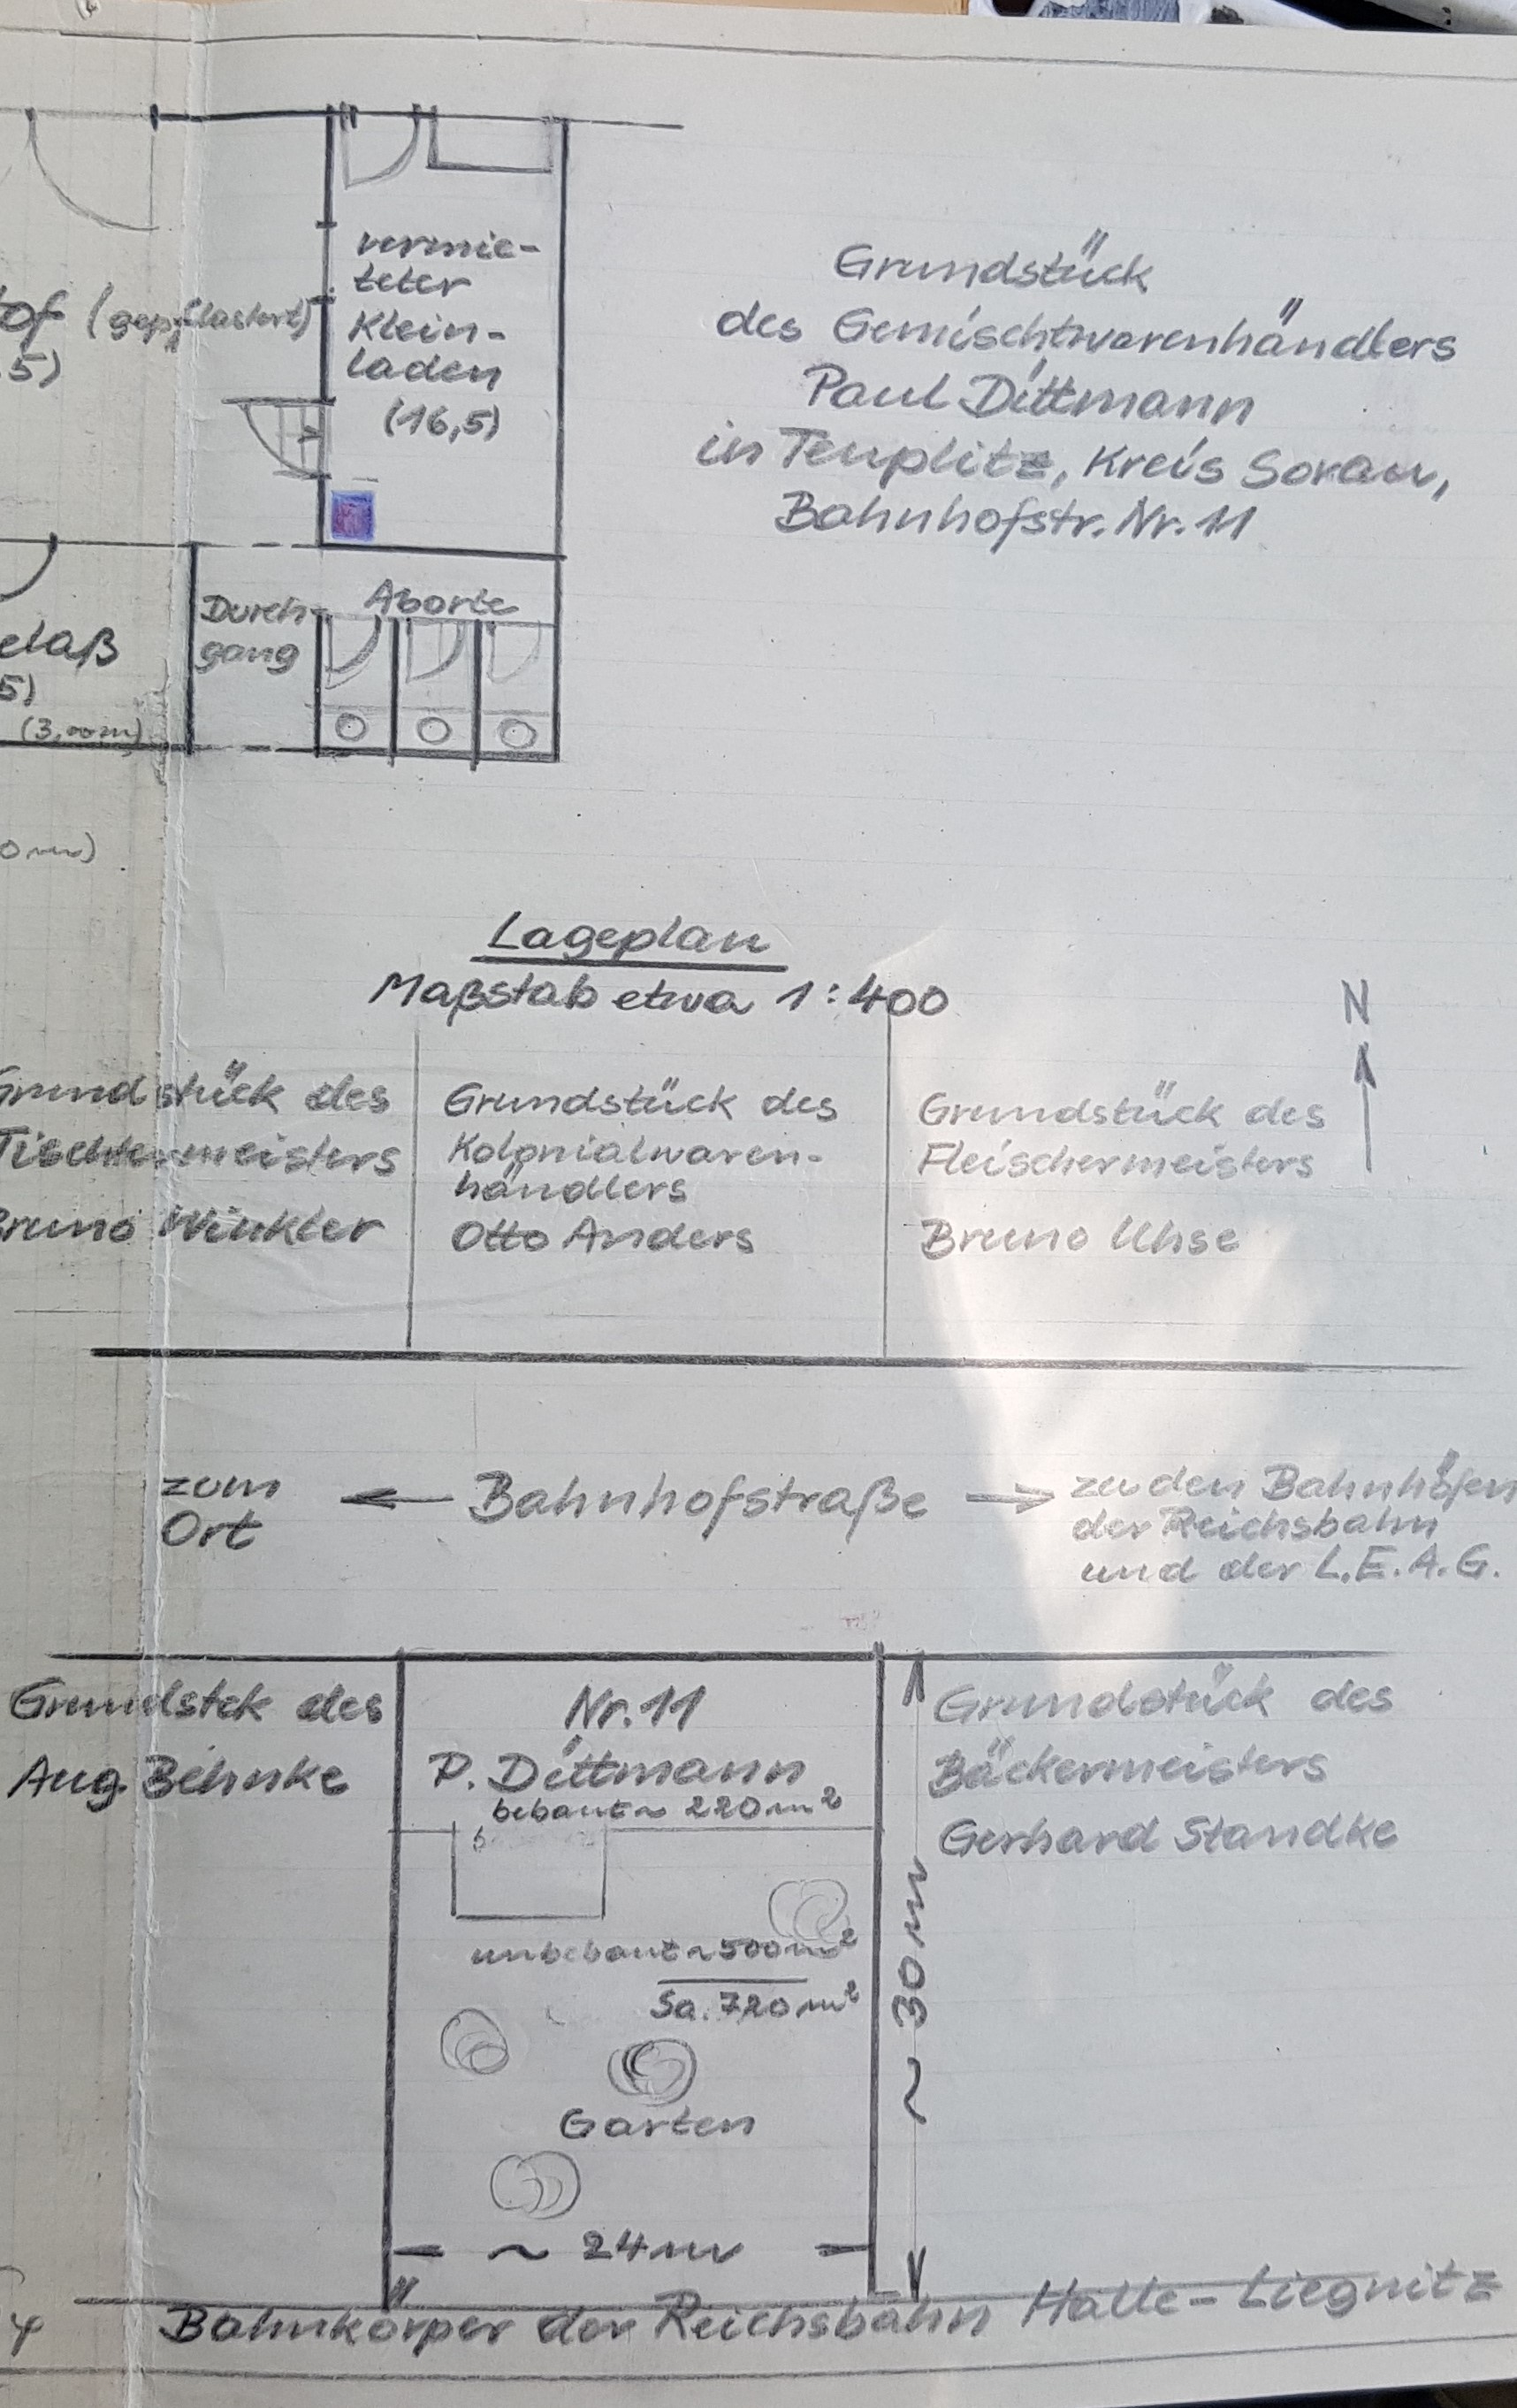 vermie-
teter
Klein-
laden
(16,5)
of (gepflastert)
5)
Durch-
gang
Aborte
elaß
5)
(3,00m)
0 m)
Grundstück
des Gemischtwarenhändlers
Paul Dittmann
in Teuplitz, Kreis Sorau,
Bahnhofstr. Nr. 11
Lageplan
Maßstab etwa 1:400
N
Grundstück des
Tischlermeisters
Bruno Winkler
Grundstück des
Kolonialwaren-
händlers
Otto Anders
Grundstück des
Fleischermeisters
Bruno Uhse
zum
Ort
Bahnhofstraße
zu den Bahnhöfen
der Reichsbahn
und der L.E.A.G.
Grundstck des
Aug. Behnke
Nr. 11
P. Dittmann
bebaut ~ 220 m²
unbebaut ~ 500 m²
Sa. 720 m²
Garten
~ 24 m
~ 30 m
Grundstück des
Bäckermeisters
Gerhard Standke
Bahnkörper der Reichsbahn Halle - Liegnitz